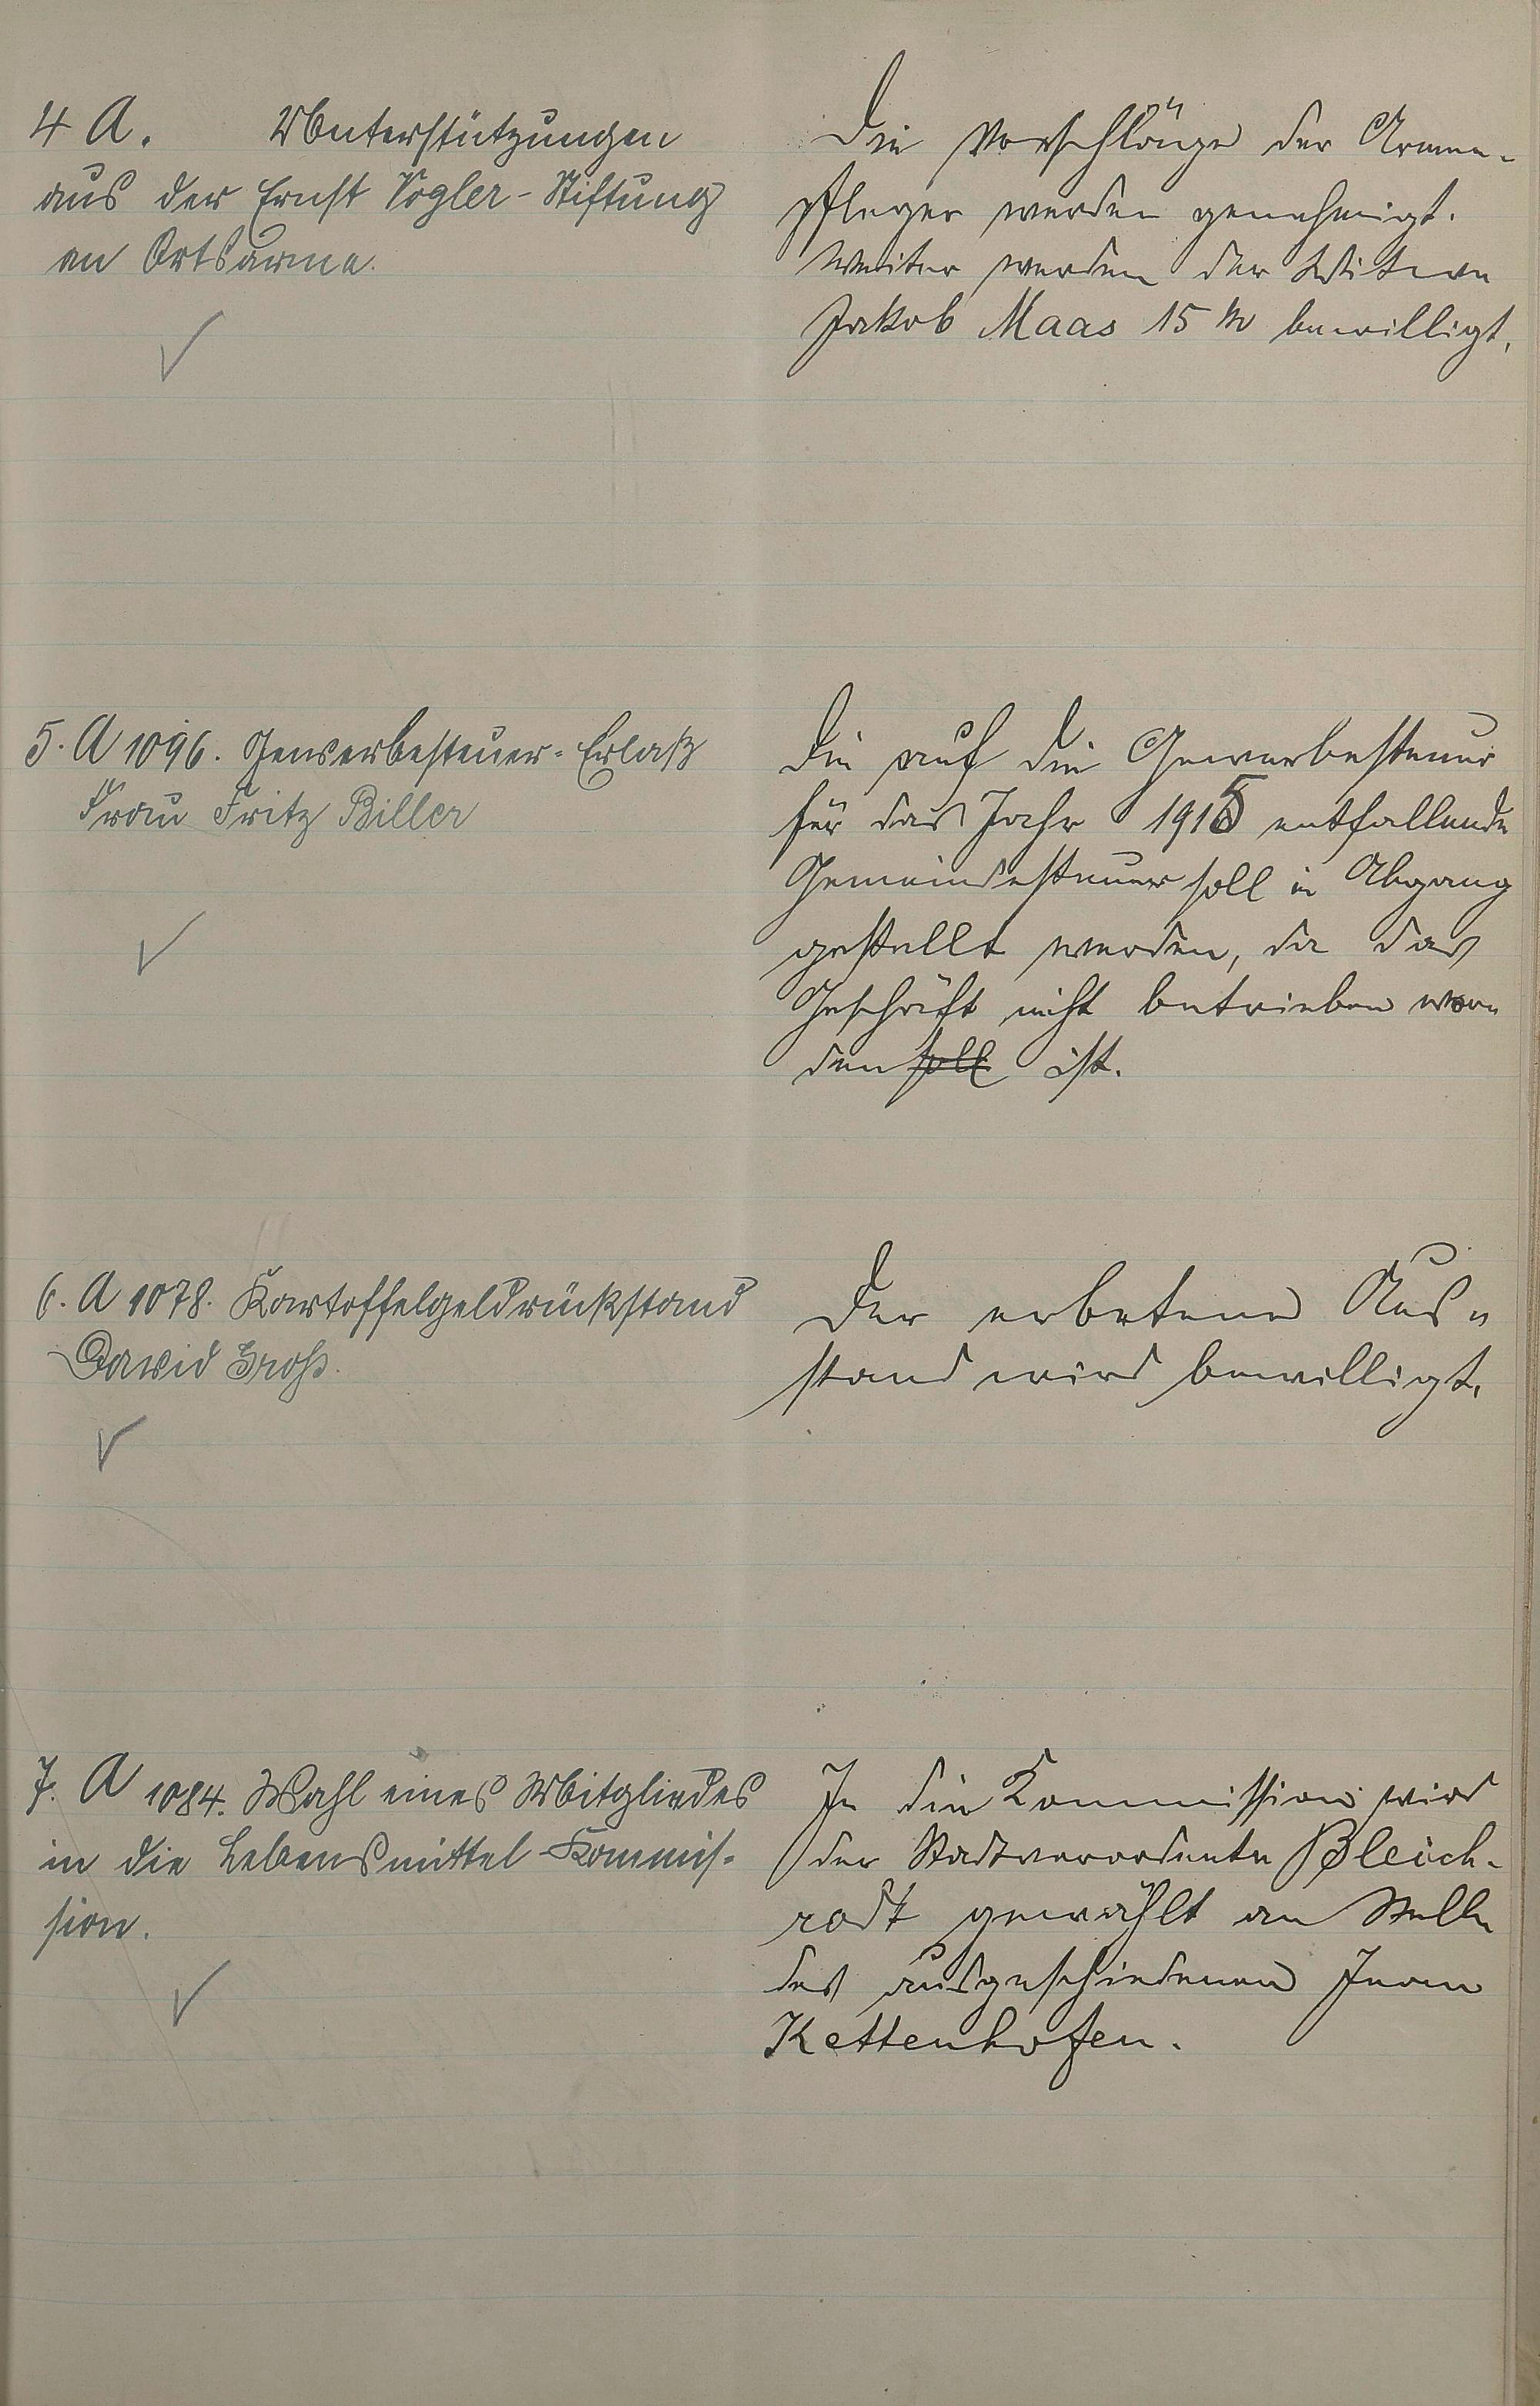 4 A. Unterstützungen
aus der Ernst Vogler-Stiftung
an Ortsarme.
Die Vorschläge der Armen-
pfleger werden genehmigt.
Weiter werden der Witwe
Jakob Maas 15 M bewilligt.
5. A 1096. Gewerbesteuer-Erlaß
Frau Fritz Biller
Die auf die Gewerbesteuer
für das Jahr 1915 entfallende
Gemeindesteuer soll in Abgang
gestellt werden, da das
Geschäft nicht betrieben wor-
den soll ist.
6. A 1078. Kartoffelgeldrückstand
David Groß.
Der erbetene Aus-
stand wird bewilligt.
7. A 1084. Wahl eines Mitgliedes
in die Lebensmittel-Kommis-
sion.
In die Kommission wird
der Stadtverordnete Bleich-
rodt gewählt an Stelle
des ausgeschiedenen Jean
Kettenhofen.